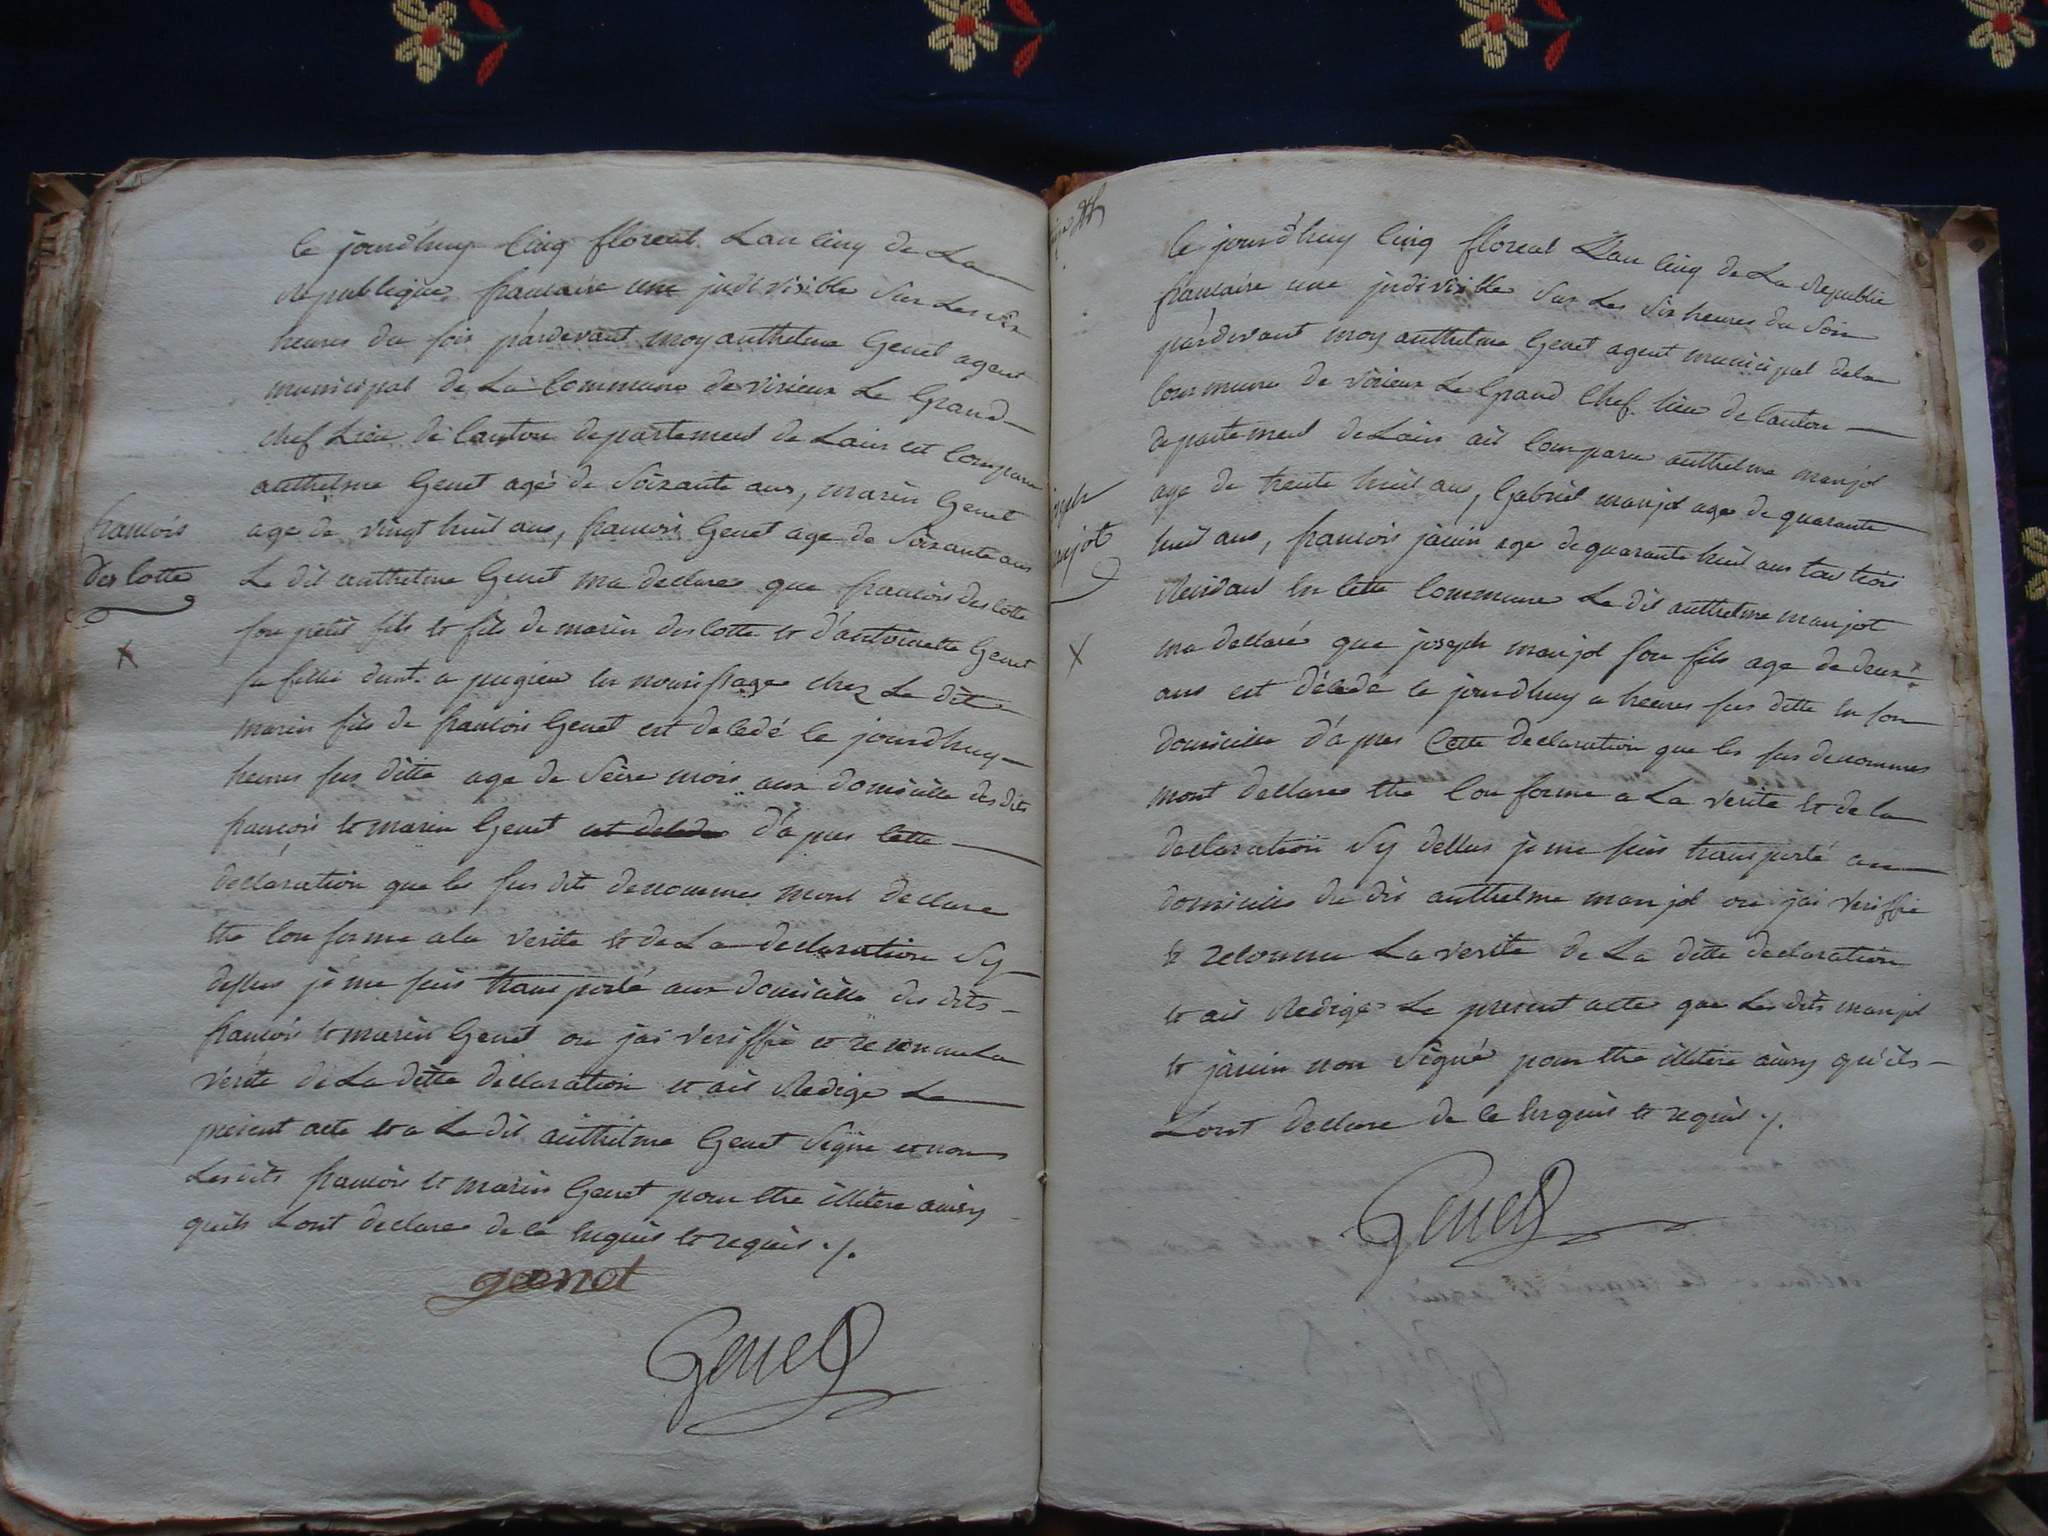 le jourd'huy cinq floreal Lan cinq de La
Republique francaise une jndivisible sur Les six
heures du soir pardevant moy anthelme Genet agent
municipal de La Commune de virieux Le Grand
chef Lieu de Canton departement de Lain est comparu
anthelme Genet agé de soixante ans, marin Genet
age de vingt huit ans, francois Genet age de soixante ans
francois
des cotte
Le dit anthelme Genet ma declare que francois des cotte
son petit fils et fils de marin des cotte et d'antoinette Genet
sa fille a pugieu en nourissage chez Le dit
marin fils de francois Genet est decedé ce jourdhuy
heures sus ditte age de seize mois aux domicille des dits
francois et marin Genet est decede d'apres cette
declaration que les sus dits denommes mont declare
etre conforme ala verite et de La declaration sy
dessus je me suis transporté aux domicille des dits
francois et marin Genet ou jai veriffié et reconnu La
verite de La ditte declaration et ait Redige Le
present acte et a Le dit anthelme Genet signe et non
Les dits francois et marin Genet pour etre illitere ainsy
quils Lont declare de ce enquis et requis ./.
genet
Genet
le jourd'huy cinq floreal Lan cinq de La Republic
francaise une jndivisible sur Les six heures du soir
pardevant moy anthelme Genet agent municipal dela
Commune de virieux Le Grand Chef lieu de Canton
departement de Lain ait comparu anthelme manjot
age de trente huit ans, Gabriel manjot age de quarante
huit ans, francois janin age de quarante huit ans tous trois
Residant en cette Commune Le dit anthelme manjot
ma declaré que joseph manjot son fils age de deux
ans est décedé ce jourdhuy a heures sus ditte en son
domicille d'apres Cette declaration que les sus denommes
mont declare etre conforme a La verite et de la
declaration sy dessus je me suis transporté au
domicille du dit anthelme manjot ou jai veriffie
et reconnu La verite de La ditte declaration
et ait Redige Le present acte que Les dits manjot
et janin non signé pour etre illitere ainsy qu'ils
Lont declare de ce enquis et requis ./.
Genet